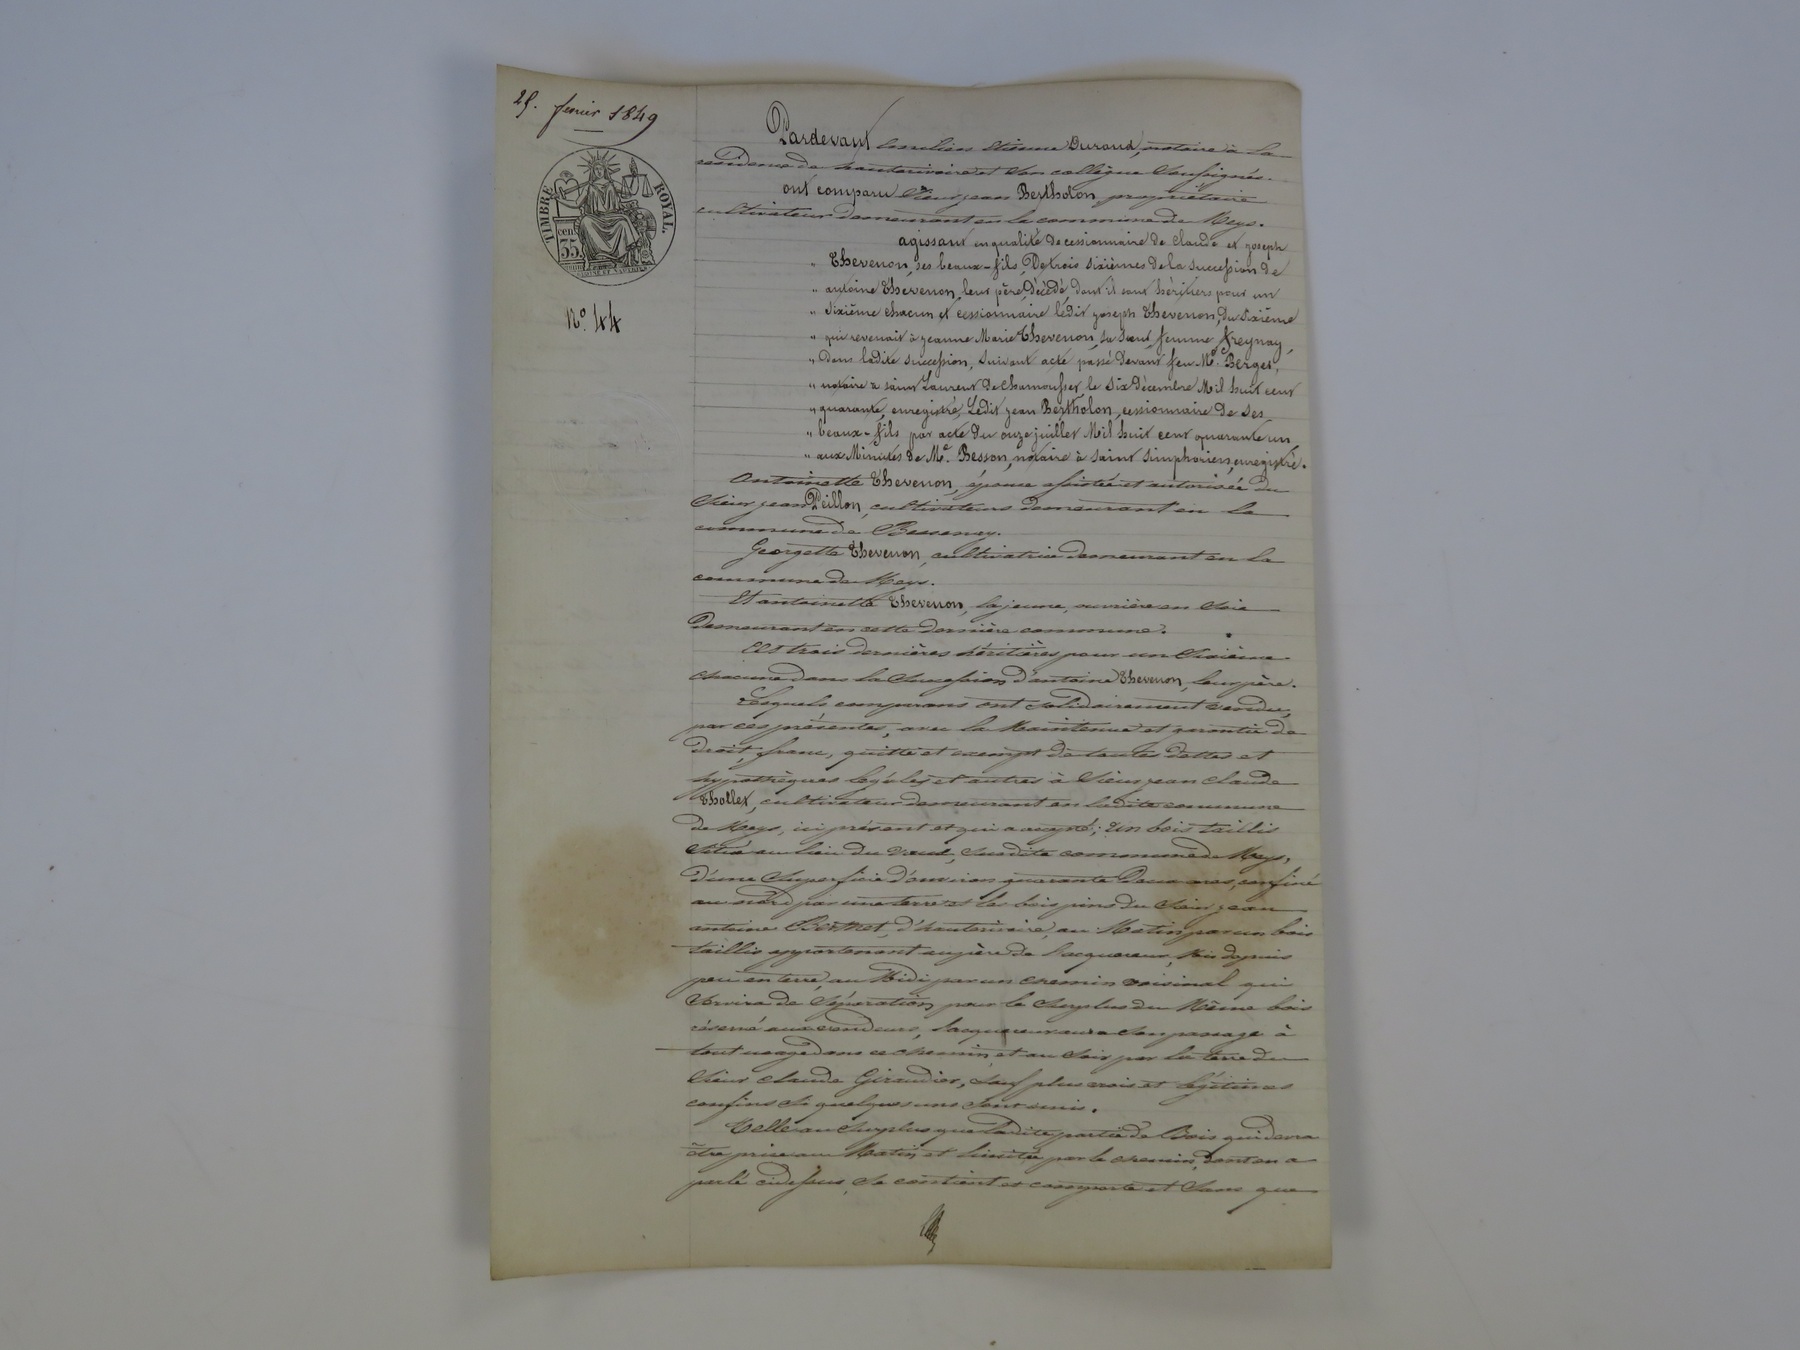 25. février 1849
TIMBRE ROYAL.
35 cen
N.o 44
Pardevant Etienne Durand, notaire à la
résidence de hauterivoire et son collègue Soussignés.
ont comparu Sieur jean Bertholon, propriétaire
cultivateur demeurant en la commune de Meys.
agissant en qualité de cessionnaire de Claude et joseph
„ Thevenon, ses beaux-fils, De trois sixièmes de la succession de
„ antoine Thevenon, leur père, décédé, dont il sont héritiers pour un
„ sixième chacun et cessionnaire lédit joseph Thevenon, du sixième
„ qui revenait à jeanne Marie Thevenon, sa sœur, femme freynay,
„ dans ladite succession, suivant acte passé devant feu Me. Berger,
„ notaire a saint Laurent de Chamousset, le six décembre Mil huit cent
„ quarante, enregistré, Ledit jean Bertholon, cessionnaire de ses
„ beaux-fils par acte du onze juillet Mil huit cent quarante un,
„ aux Minutes de Me. Besson, notaire à saint simphorien, enregistré.
Antoinette Thevenon, épouse assistée et autorisée du
Sieur jean Peillon, cultivateurs demeurant en la
commune de Bessenay.
Georgette Thevenon, cultivatrice demeurant en la
commune de Meys.
Et antoinette Thevenon, la jeune, ouvrière en Soie
Demeurant en cette dernière commune.
Les trois dernières héritières pour un Sixième
chacune dans la Succession d'antoine Thevenon, leur père.
Lesquels comparans ont Solidairement vendu,
par ces présentes, avec la Maintenue et garantie de
droit, franc, quitte et exempt de toutes dettes et
hypothèques légales et autres à Sieur jean claude
Thollet, cultivateur demeurant en ladite commune
de Meys, ici présent et qui accepte; Un bois taillis
Situé au lieu du Susdite commune de Meys,
d'une Superficie d'environ quarante Deux ares, confiné
au nord par une terre et les bois pins du Sieur jean
antoine Berthet, d'hauterivoire, au Matin par un bois
taillis appartenant au père de l'acquereur, Mis depuis
peu en terre, au Midi par un chemin voisinal qui
Servira de Séparation pour le Surplus du Même bois
réservé aux vendeurs, l'acquereur aura Son passage à
tout usage dans ce chemin, et au Soir par la terre du
Sieur claude Giraudier, Sauf plus vrais et légitimes
confins Si quelques uns Sont omis.
Telle au Surplus que ladite partie de Bois qui devra
être prise au Matin et limitée par le chemin dont on a
parlé cidessus, Se contient et comporte et Sans que